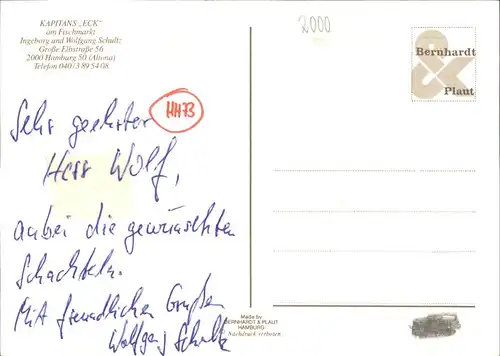 KAPITANS „ECK"
am Fischmarkt
Ingeborg und Wolfgang Schultz
Große Elbstraße 56
2000 Hamburg 50 (Altona)
Telefon 040/3 89 54 08
2000
Bernhardt
&
Plaut
HH73
Sehr geehrter
Herr Wolf,
anbei die gewünschten
Schachteln.
Mit freundlichen Grüßen
Wolfgang Schultz
Made by
BERNHARDT & PLAUT
HAMBURG
Nachdruck verboten